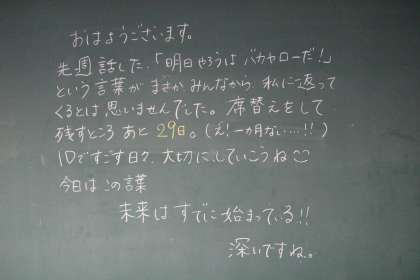 おはようございます。
先週話した、「明日やろうはバカヤローだ!」
という言葉がまさか、みんなから、私に返って
くるとは思いませんでした。席替えをして
残すところあと29日。(え!一カ月ない…!!)
1Dですごす日々、大切にしていこうね
今日はこの言葉
未来はすでに始まっている!!
深いですね。